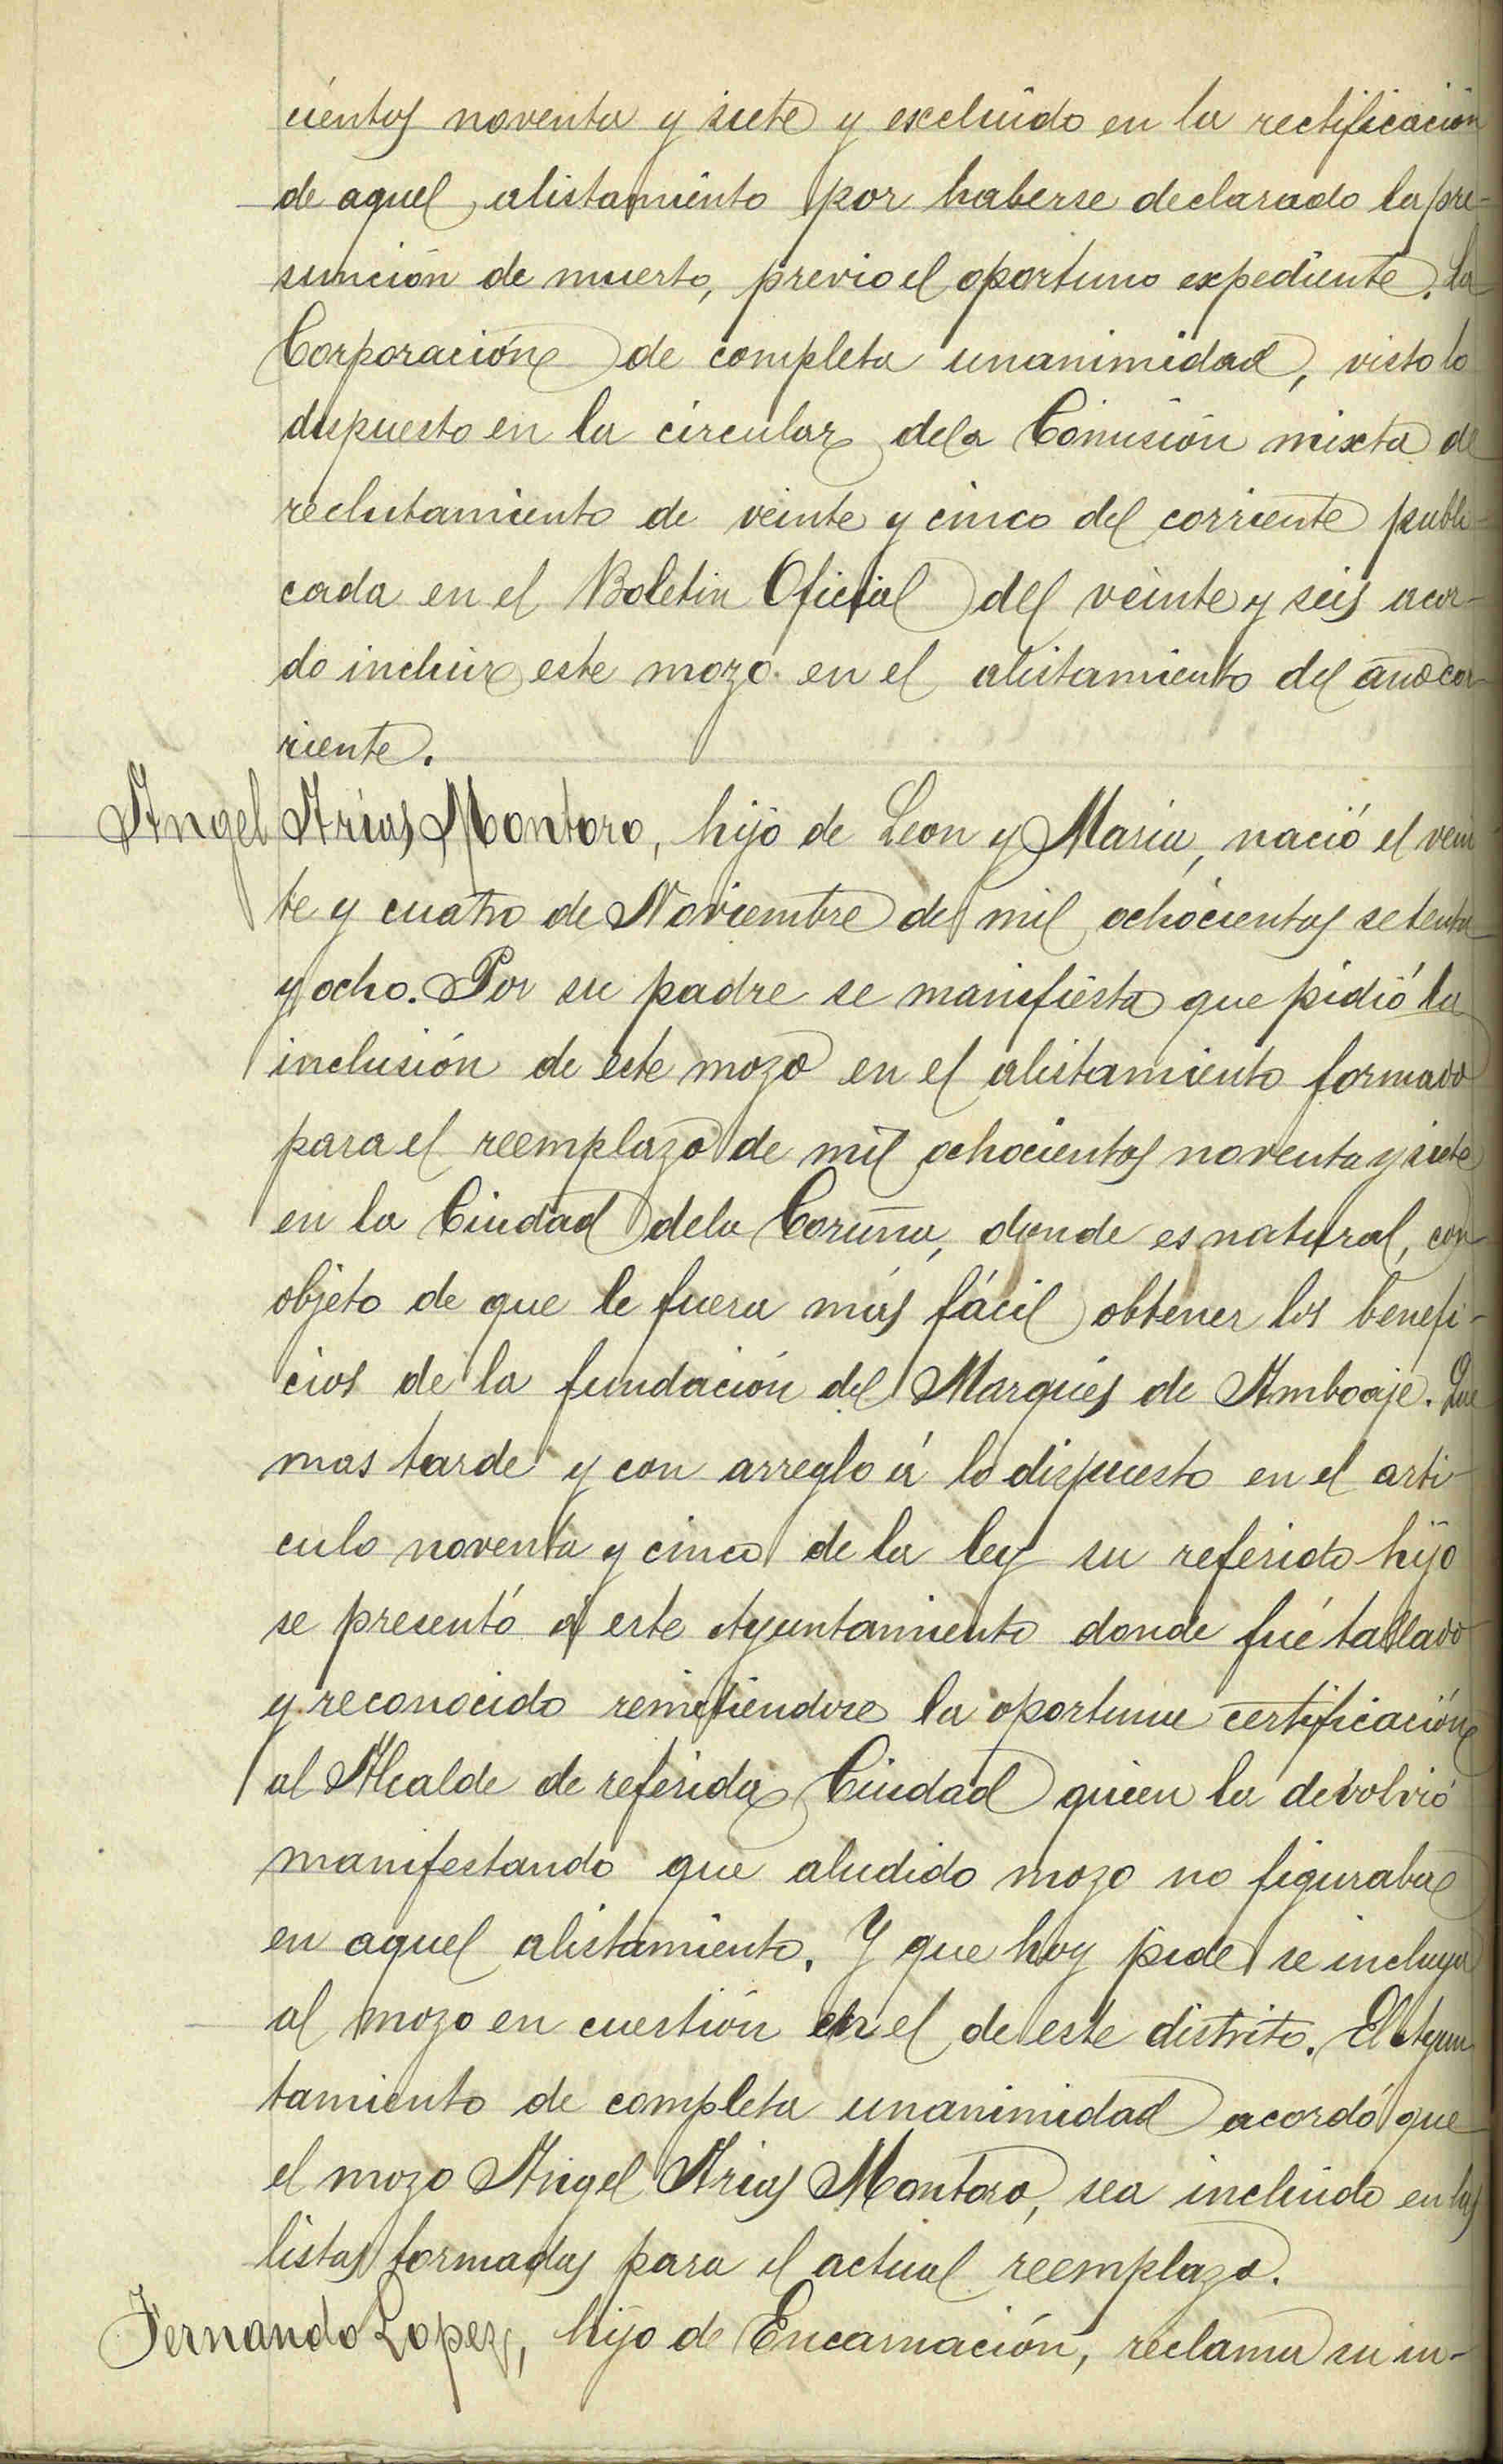 cientos noventa y siete y excluido en la rectificación
de aquel alistamiento por haberse declarado la pre-
sunción de muerto, previo el oportuno expediente. La
Corporación de completa unanimidad, visto lo
dispuesto en la circular dela Comisión mixta de
reclutamiento de veinte y cinco del corriente publi-
cada en el Boletin Oficial del veinte y seis acor-
do incluir este mozo en el alistamiento del año cor-
riente.
Angel Arias Montoro, hijo de Leon y Maria, nació el vein
te y cuatro de Noviembre de mil ochocientos setenta
y ocho. Por su padre se manifiesta que pidió la
inclusión de este mozo en el alistamiento formado
para el reemplazo de mil ochocientos noventa y siete
en la Ciudad dela Coruña, donde es natural, con
objeto de que le fuera más fácil obtener los benefi-
cios de la fundación del Marqués de Amboaje. Que
mas tarde y con arreglo á lo dispuesto en el arti-
culo noventa y cinco de la ley su referido hijo
se presentó á este Ayuntamiento donde fué tallado
y reconocido remitiendose la oportuna certificación
al Alcalde de referida Ciudad quien la devolvió
manifestando que aludido mozo no figuraba
en aquel alistamiento. Y que hoy pide se incluya
al mozo en cuestión en el de este distrito. El Ayun
tamiento de completa unanimidad acordó que
el mozo Angel Arias Montoro, sea incluido en las
listas formadas para el actual reemplazo.
Fernando Lopez, hijo de Encarnación, reclama su in-